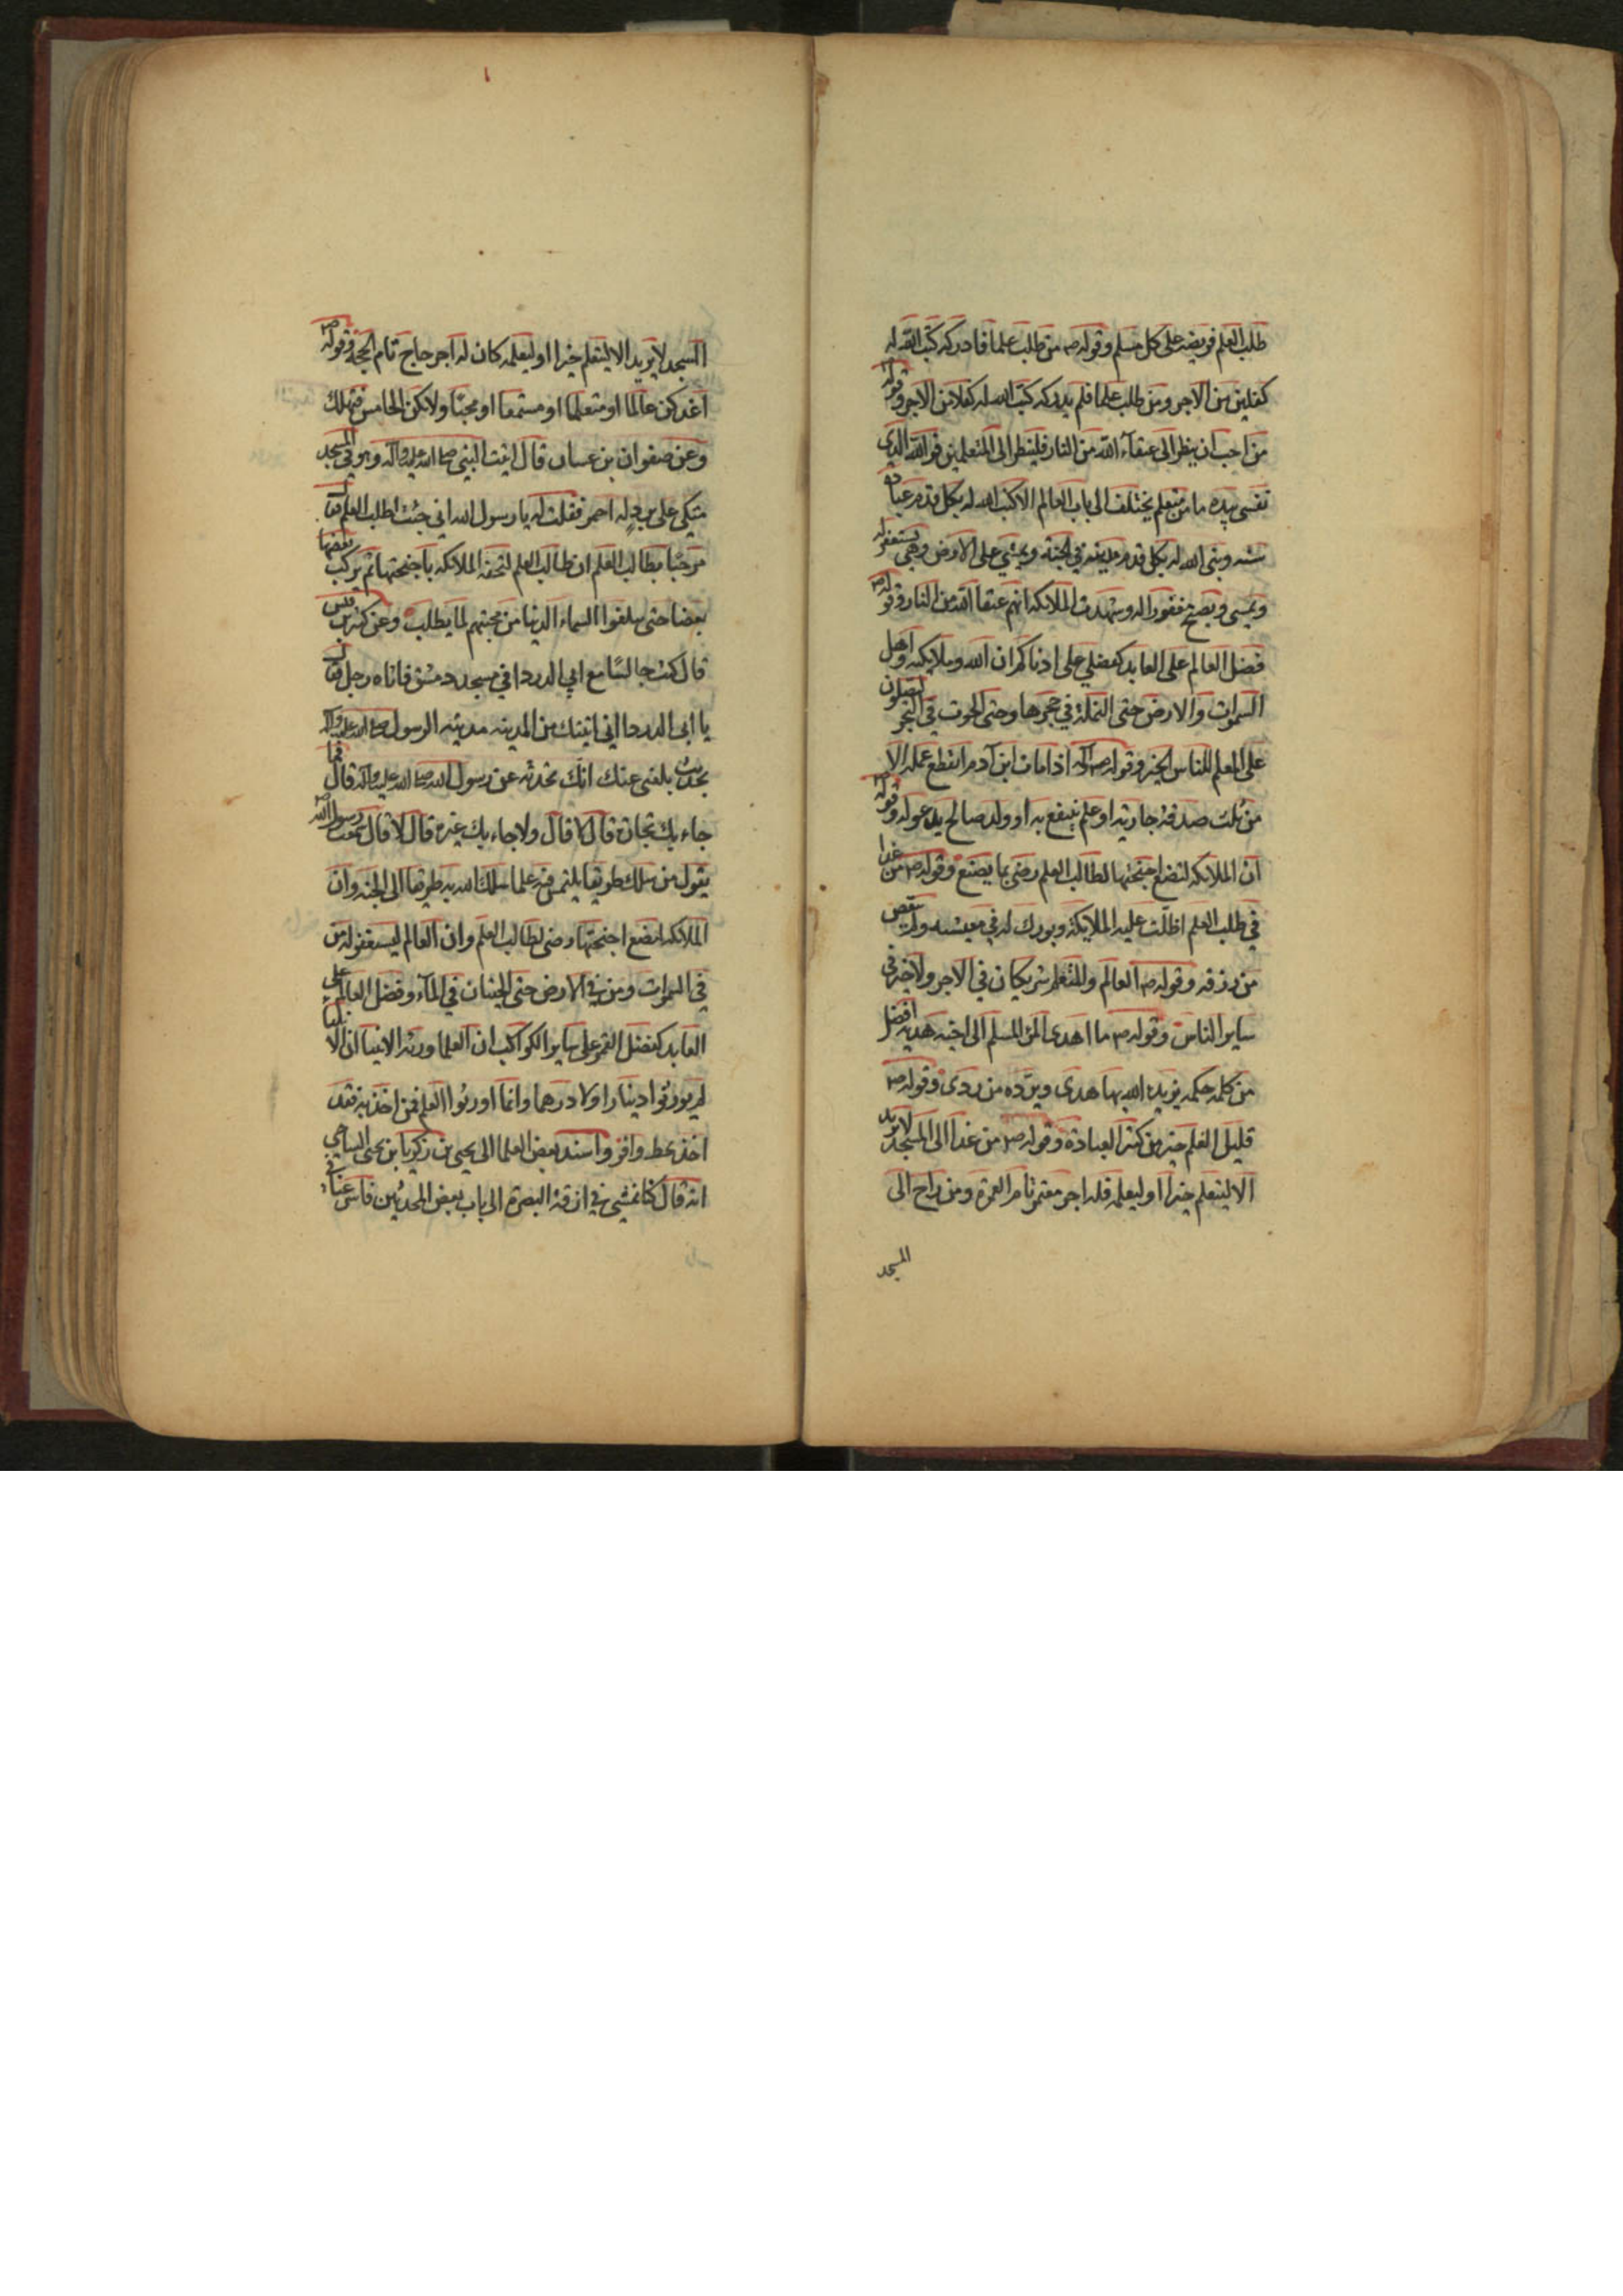 طلب العلم فريضة على كل مسلم وقوله ص من طلب علما فادركه كتب الله له
كفلين من الاجر ومن طلب علما فلم يدركه كتب الله له كفلا من الاجر وقوله
من احب ان ينظر الى عتقاء الله من النار فلينظر الى المتعلمين فوالله الذي
نفسي بيده ما من متعلم يختلف الى باب العالم الا كتب الله له بكل قدم عبادة
سنه وبنى الله له بكل قدم مدينه في الجنة ويمشي على الارض وهي تستغفر له
ويمسي ويصبح مغفورا له وشهدت الملائكه انهم عتقا الله من النار وقوله ص
فضل العالم على العابد كفضلي على ادناكم ان الله وملايكته واهل
السموات والارض حتى النملة في حجرها وحتى الحوت في البحر ليصلون
على المعلم للناس الخير وقوله ص اذا مات ابن آدم انقطع عمله الا
من ثلث صدقة جاريه او علم ينتفع به او ولد صالح يدعو له وقوله ص
ان الملائكه لتضع اجنحتها لطالب العلم رضى بما يصنع وقوله ص من غدا
في طلب العلم اظلت عليه الملايكة وبورك له في معيشته ولم ينقص
من رزقه وقوله ص العالم والمتعلم شريكان في الاجر ولا خير في
ساير الناس وقوله ص ما اهدى المرؤ المسلم الى اخيه هديه افضل
من كلمه حكمه يزيده الله بها هدى ويرده من ردى وقوله ص
قليل العلم خير من كثير العبادة وقوله ص من غدا الى المسجد لا يريد
الا ليتعلم خيرا او ليعلمه فله اجر معتمر تام العمرة ومن راح الى
المسجد
المسجد لا يريد الا ليتعلم خيرا او ليعلمه كان له اجر حاج تام الحجة وقوله ص
اغد كن عالما او متعلما او مستمعا او محبا ولا تكن الخامس فتهلك
وعن صفوان بن عسال قال اتيت النبي صلى الله عليه وآله وهو في المسجد
متكي على برد له احمر فقلت له يا رسول الله اني جئت اطلب العلم فقال
مرحبا بطالب العلم ان طالب العلم لتحفه الملائكه باجنحتها ثم يركب بعضها
بعضا حتى يبلغوا السماء الدنيا من محبتهم لما يطلب وعن كثير بن قيس
قال كنت جالسا مع ابي الدردا في مسجد دمشق فاتاه رجل فقال
يا ابى الدردا اني اتيتك من المدينه مدينه الرسول صلى الله عليه وآله
بحديث بلغني عنك انك تحدثه عن رسول الله صلى الله عليه وآله قال فما
جاء بك تجارة قال لا قال ولا جاء بك غيره قال لا قال سمعت رسول الله ص
يقول من سلك طريقا يلتمس فيه علما سلك الله به طريقا الى الجنه وان
الملائكه لتضع اجنحتها رضى لطالب العلم وان العالم ليستغفر له من
في السموات ومن في الارض حتى الحيتان في الماء وفضل العالم على
العابد كفضل القمر على ساير الكواكب ان العلما ورثه الانبيا ان الانبياء
لم يورثوا دينارا ولا درهما وانما اورثوا العلم فمن اخذ به فقد
اخذ بحظ وافر واسند بعض العلما الى يحيى بن زكريا بن يحيى الساجي
انه قال كنا نمشي في ازقة البصرة الى باب بعض المحدثين فاسرعنا في